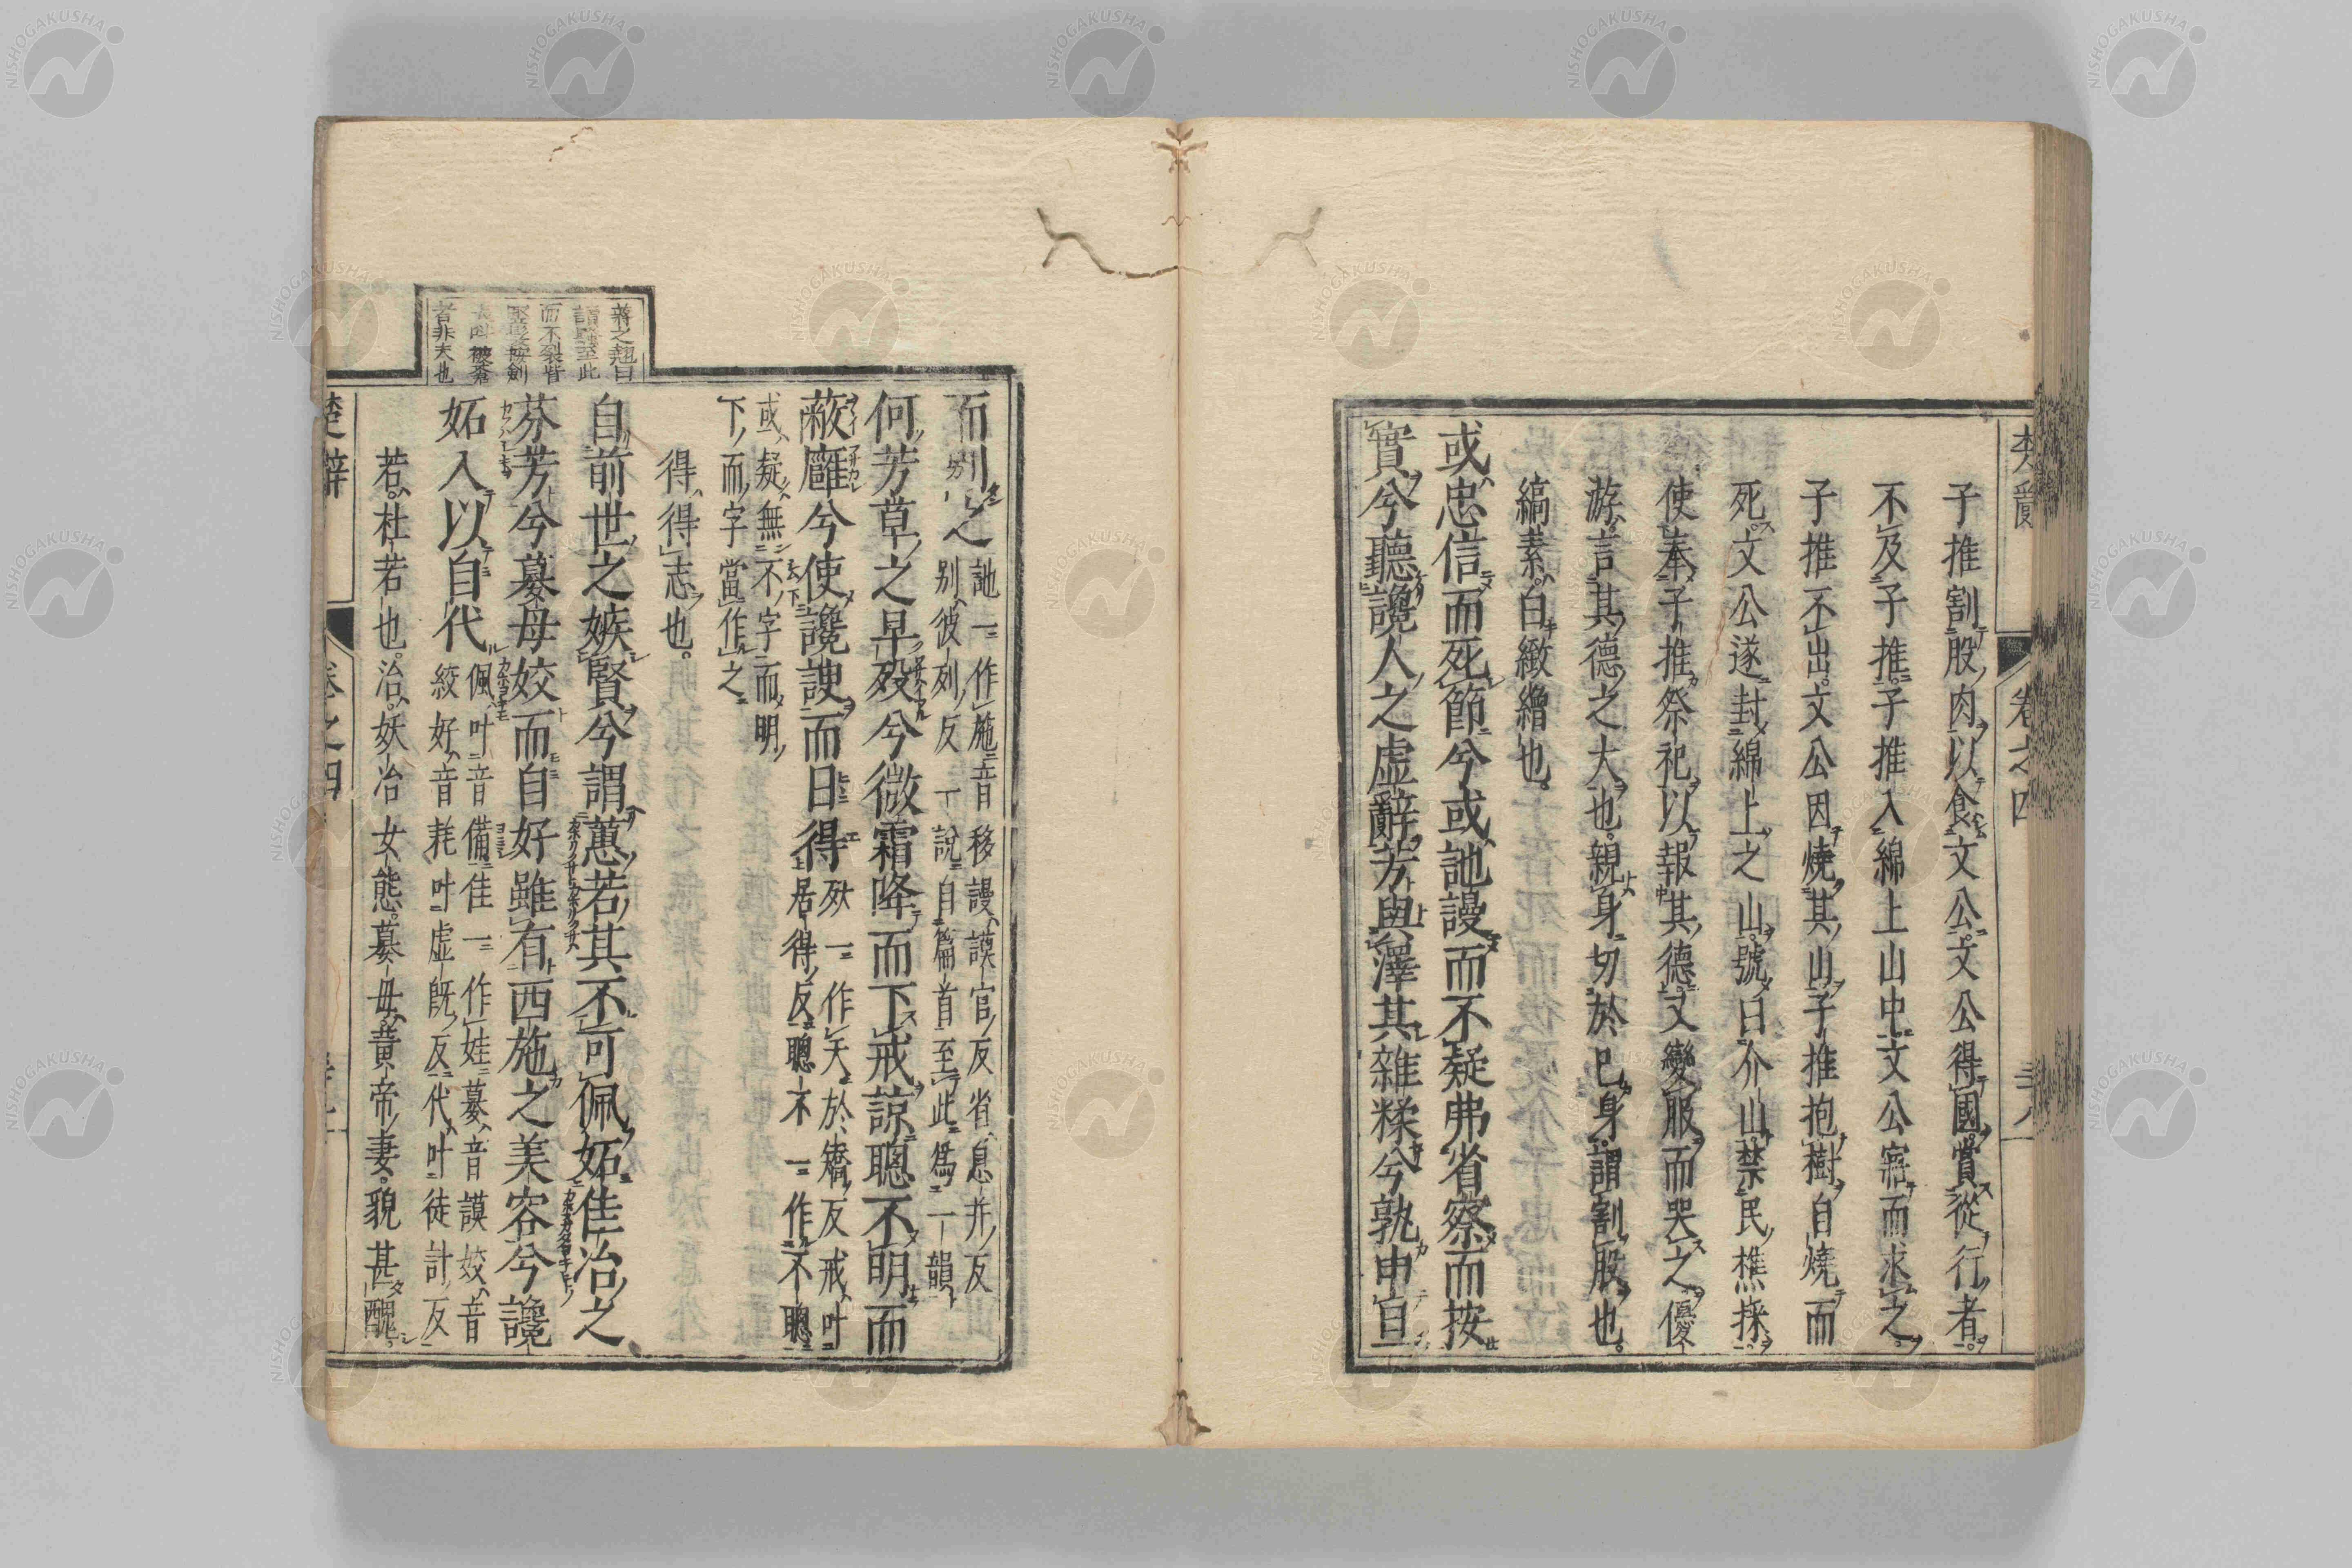 子推割股肉以食文公文公得國賞從行者
不及子推子推入綿上山中文公寤而求之
子推不出文公因燒其山子推抱樹自燒而
死文公遂封綿上之山號曰介山禁民樵採
使奉子推祭祀以報其德又變服而哭之優
游言其德之大也親身切於己身謂割股也
縞素白緻繒也
或忠信而死節兮或訑謾而不疑弗省察而按
實兮聽讒人之虛辭芳與澤其雜糅兮孰申旦
而別之
訑一作施音移謾謨官反省息井反
別彼列反 一說自篇首至此爲一韻
何芳草之早殀兮微霜降而下戒諒聰不明而
蔽廱兮使讒諛而日得
殀一作夭於矯反戒叶
居得反聰不一作不聰
或疑無不字而明
下而字當作之
得得志也
自前世之嫉賢兮謂蕙若其不可佩妬佳冶之
芬芳兮嫫母姣而自好雖有西施之美容兮讒
妬入以自代
佩叶音備佳一作娃嫫音謨姣音
絞好音耗叶虛旣反代叶徒計反
若杜若也冶妖冶女態嫫母黃帝妻貌甚醜
蔣之翹曰
讀騷至此
而不裂眥
豎髮按劍
者非夫也
楚辭
卷之四
NISHOGAKUSHA